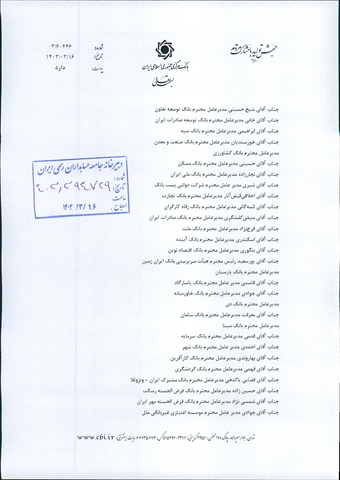 جهش تولید با مشارکت مردم
بانک مرکزی جمهوری اسلامی ایران
بسمه تعالی
شماره: ۰۳/۶۰۴۴۶
تاریخ: ۱۴۰۳/۰۳/۱۶
پیوست: دارد
جناب آقای شیخ حسینی مدیرعامل محترم بانک توسعه تعاون
جناب آقای خانی مدیرعامل محترم بانک توسعه صادرات ایران
جناب آقای ابراهیمی مدیرعامل محترم بانک سپه
جناب آقای خورسندیان مدیرعامل محترم بانک صنعت و معدن
مدیرعامل محترم بانک کشاورزی
جناب آقای شایان مدیرعامل محترم بانک مسکن
جناب آقای نجارزاده مدیرعامل محترم بانک ملی ایران
جناب آقای شیری مدیر عامل محترم شرکت دولتی پست بانک
جناب آقای اخلاقی فیض آثار مدیرعامل محترم بانک تجارت
جناب آقای لله گانی مدیرعامل محترم بانک رفاه کارگران
جناب آقای سیفی کفشگری مدیرعامل محترم بانک صادرات ایران
جناب آقای فرخ نژاد مدیرعامل محترم بانک ملت
جناب آقای اسکندری مدیرعامل محترم بانک آینده
جناب آقای بنگوری مدیرعامل محترم بانک اقتصاد نوین
جناب آقای پورسعید رئیس محترم هیأت سرپرستی بانک ایران زمین
مدیرعامل محترم بانک پارسیان
جناب آقای قاسمی مدیر عامل محترم بانک پاسارگاد
جناب آقای جوادی مدیرعامل محترم بانک خاورمیانه
مدیرعامل محترم بانک دی
جناب آقای معرفت مدیرعامل محترم بانک سامان
مدیرعامل محترم بانک سینا
جناب آقای قدمی مدیرعامل محترم بانک سرمایه
جناب آقای احمدی مدیر عامل محترم بانک شهر
جناب آقای بهاروندی مدیر عامل محترم بانک کارآفرین
جناب آقای فهمی مدیرعامل محترم بانک گردشگری
جناب آقای قضایی پاکدهی مدیرعامل محترم بانک مشترک ایران - ونزوئلا
جناب آقای حسین زاده مدیرعامل محترم بانک قرض الحسنه رسالت
جناب آقای شمسی نژاد مدیرعامل محترم بانک قرض الحسنه مهر ایران
جناب آقای جوادی مدیر عامل محترم موسسه اعتباری غیربانکی ملل
دبیرخانه جامعه حسابداران رسمی ایران
شماره:
تاریخ:
ساعت:
۱۴۰۳/۳/۱۶
www.cbi.ir